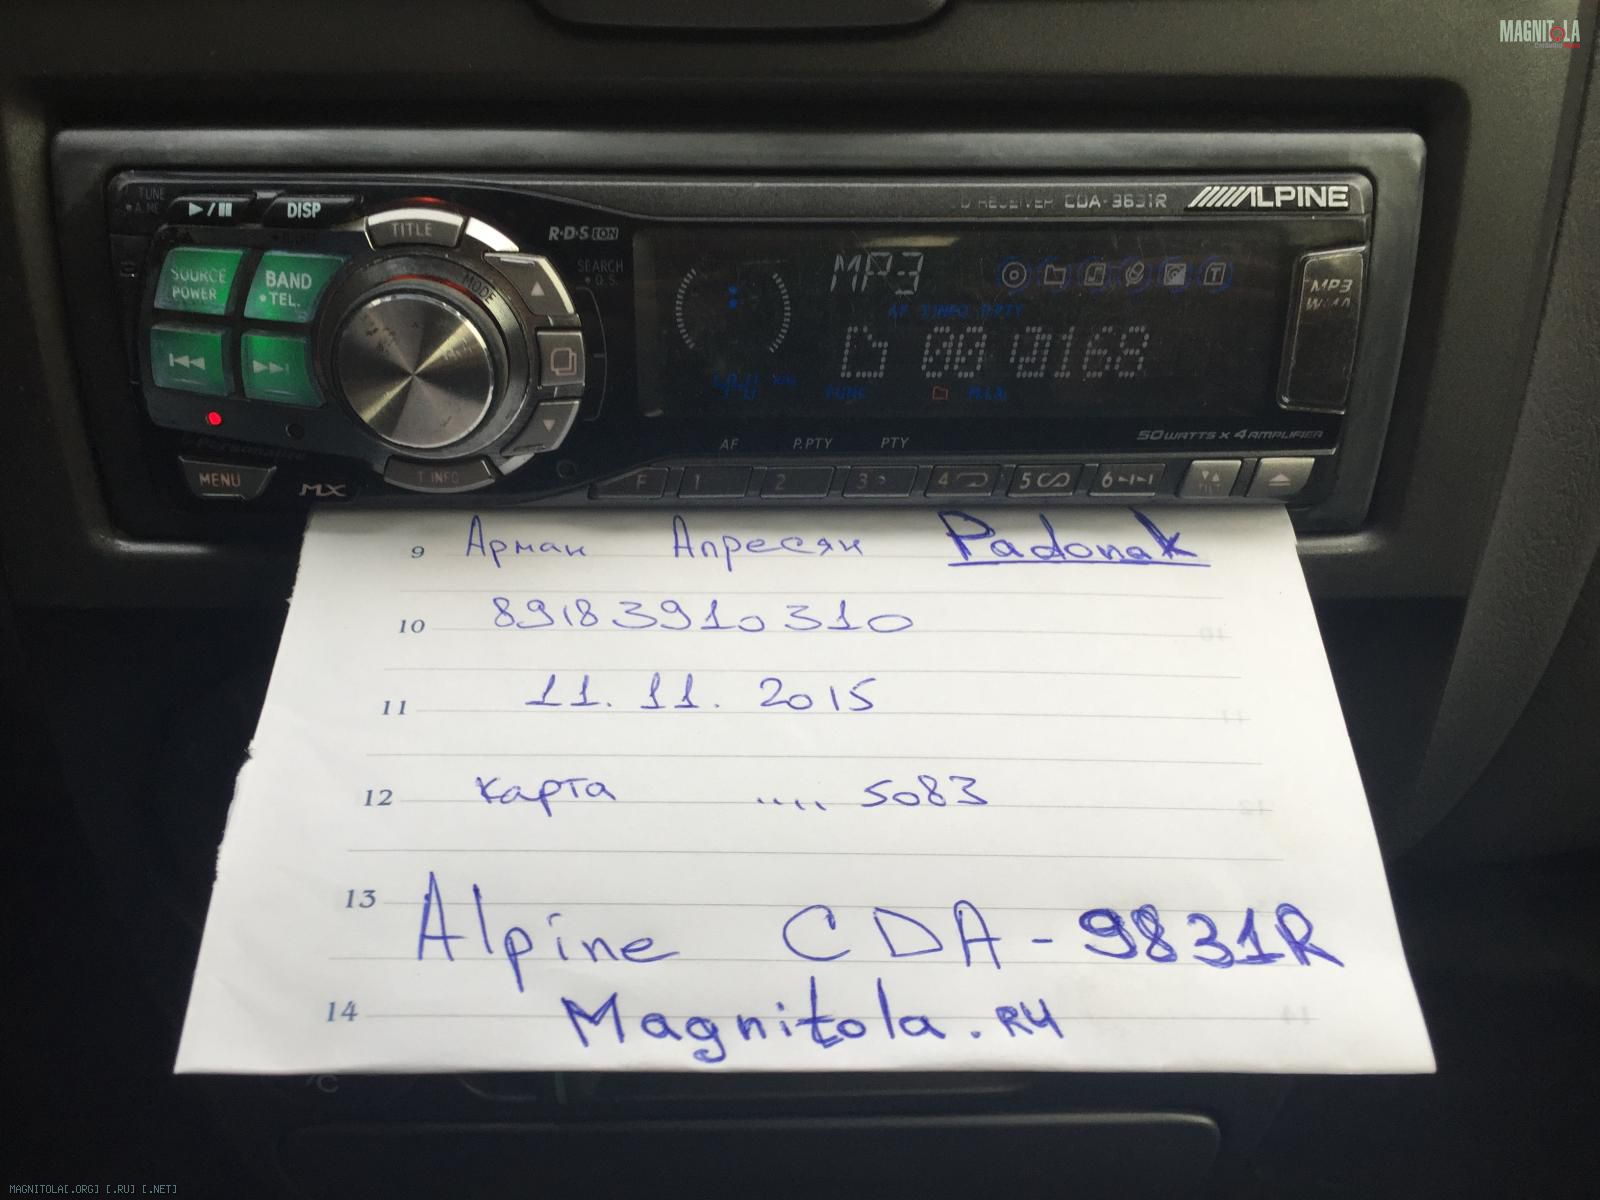 MAGNITOLA
TUNE
▶/❚❚ DISP
TITLE
R·D·S EON
CD RECEIVER CDA-9831R
ALPINE
SOURCE
POWER
BAND
TEL.
MODE
SEARCH
MP3
MP3
AF T.INFO P.PTY
00 0168
FUNC
50WATTS x 4 AMPLIFIER
AF P.PTY PTY
MENU
MX
T.INFO
F 1 2 3 4 5 6
9 Арман Апресян Padonak
10 89183910310
11 11.11.2015
12 карта .... 5083
13 Alpine CDA-9831R
14 Magnitola.RU
MAGNITOLA[.ORG] [.RU] [.NET]